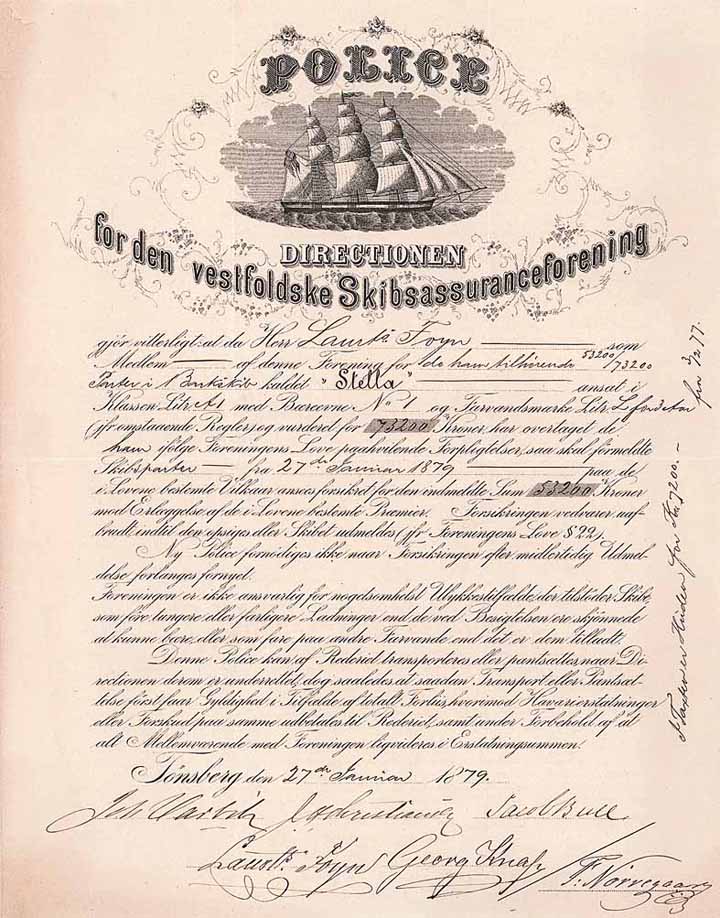 POLICE
DIRECTIONEN
for den vestfoldske Skibsassuranceforening
gjör vitterligt: at da Herr Laurts. Foyn som
Medlem af denne Forening for de ham tilhörende 53200/73200
Parter i Barkskib kaldet "Stella" ansat i
Klassen Litr. A1 med Bæreevne No 1 og Farvandsmærke Litr. L
(jfr. omstaaende Regler) og vurderet for 73200 Kroner, har overtaget de
ham ifölge Foreningens Love paahvilende Forpligtelser, saa skal formeldte
Skibsparter fra 27de Januar 1879 paa de
i Lovene bestemte Vilkaar ansees forsikret for den indmeldte Sum 53200 Kroner
mod Erlæggelse af de i Lovene bestemte Præmier. Forsikringen vedvarer uaf-
brudt, indtil den opsiges eller Skibet udmeldes (jfr Foreningens Love § 22).
Ny Police fornödiges ikke naar Forsikringen efter midlertidig Udmel-
delse forlanges fornyet.
Foreningen er ikke ansvarlig for nogetsomhelst Ulykkestilfælde, der tilstöder Skibe,
som före tungere eller farligere Ladninger end de ved Besigtelsen ere skjönnede
at kunne bære, eller som fare paa andre Farvande end det er dem tilledt.
Denne Police kan af Rederiet transporteres eller pantsættes, naar Di-
rectionen derom er underrettet, dog saaledes at saadan Transport eller Pantsæt-
telse först faar Gyldighed i Tilfælde af totalt Forlis, hvorimod Havarierstatninger
eller Forskud paa samme udbetales til Rederiet, samt under Forbehold af at
alt Mellemværende med Foreningen liqvideres i Erstatningssummen.
Tönsberg den 27de Januar 1879.
Jacob Bull
Laurts. Foyn Georg Knap
for Kr. 7200.-